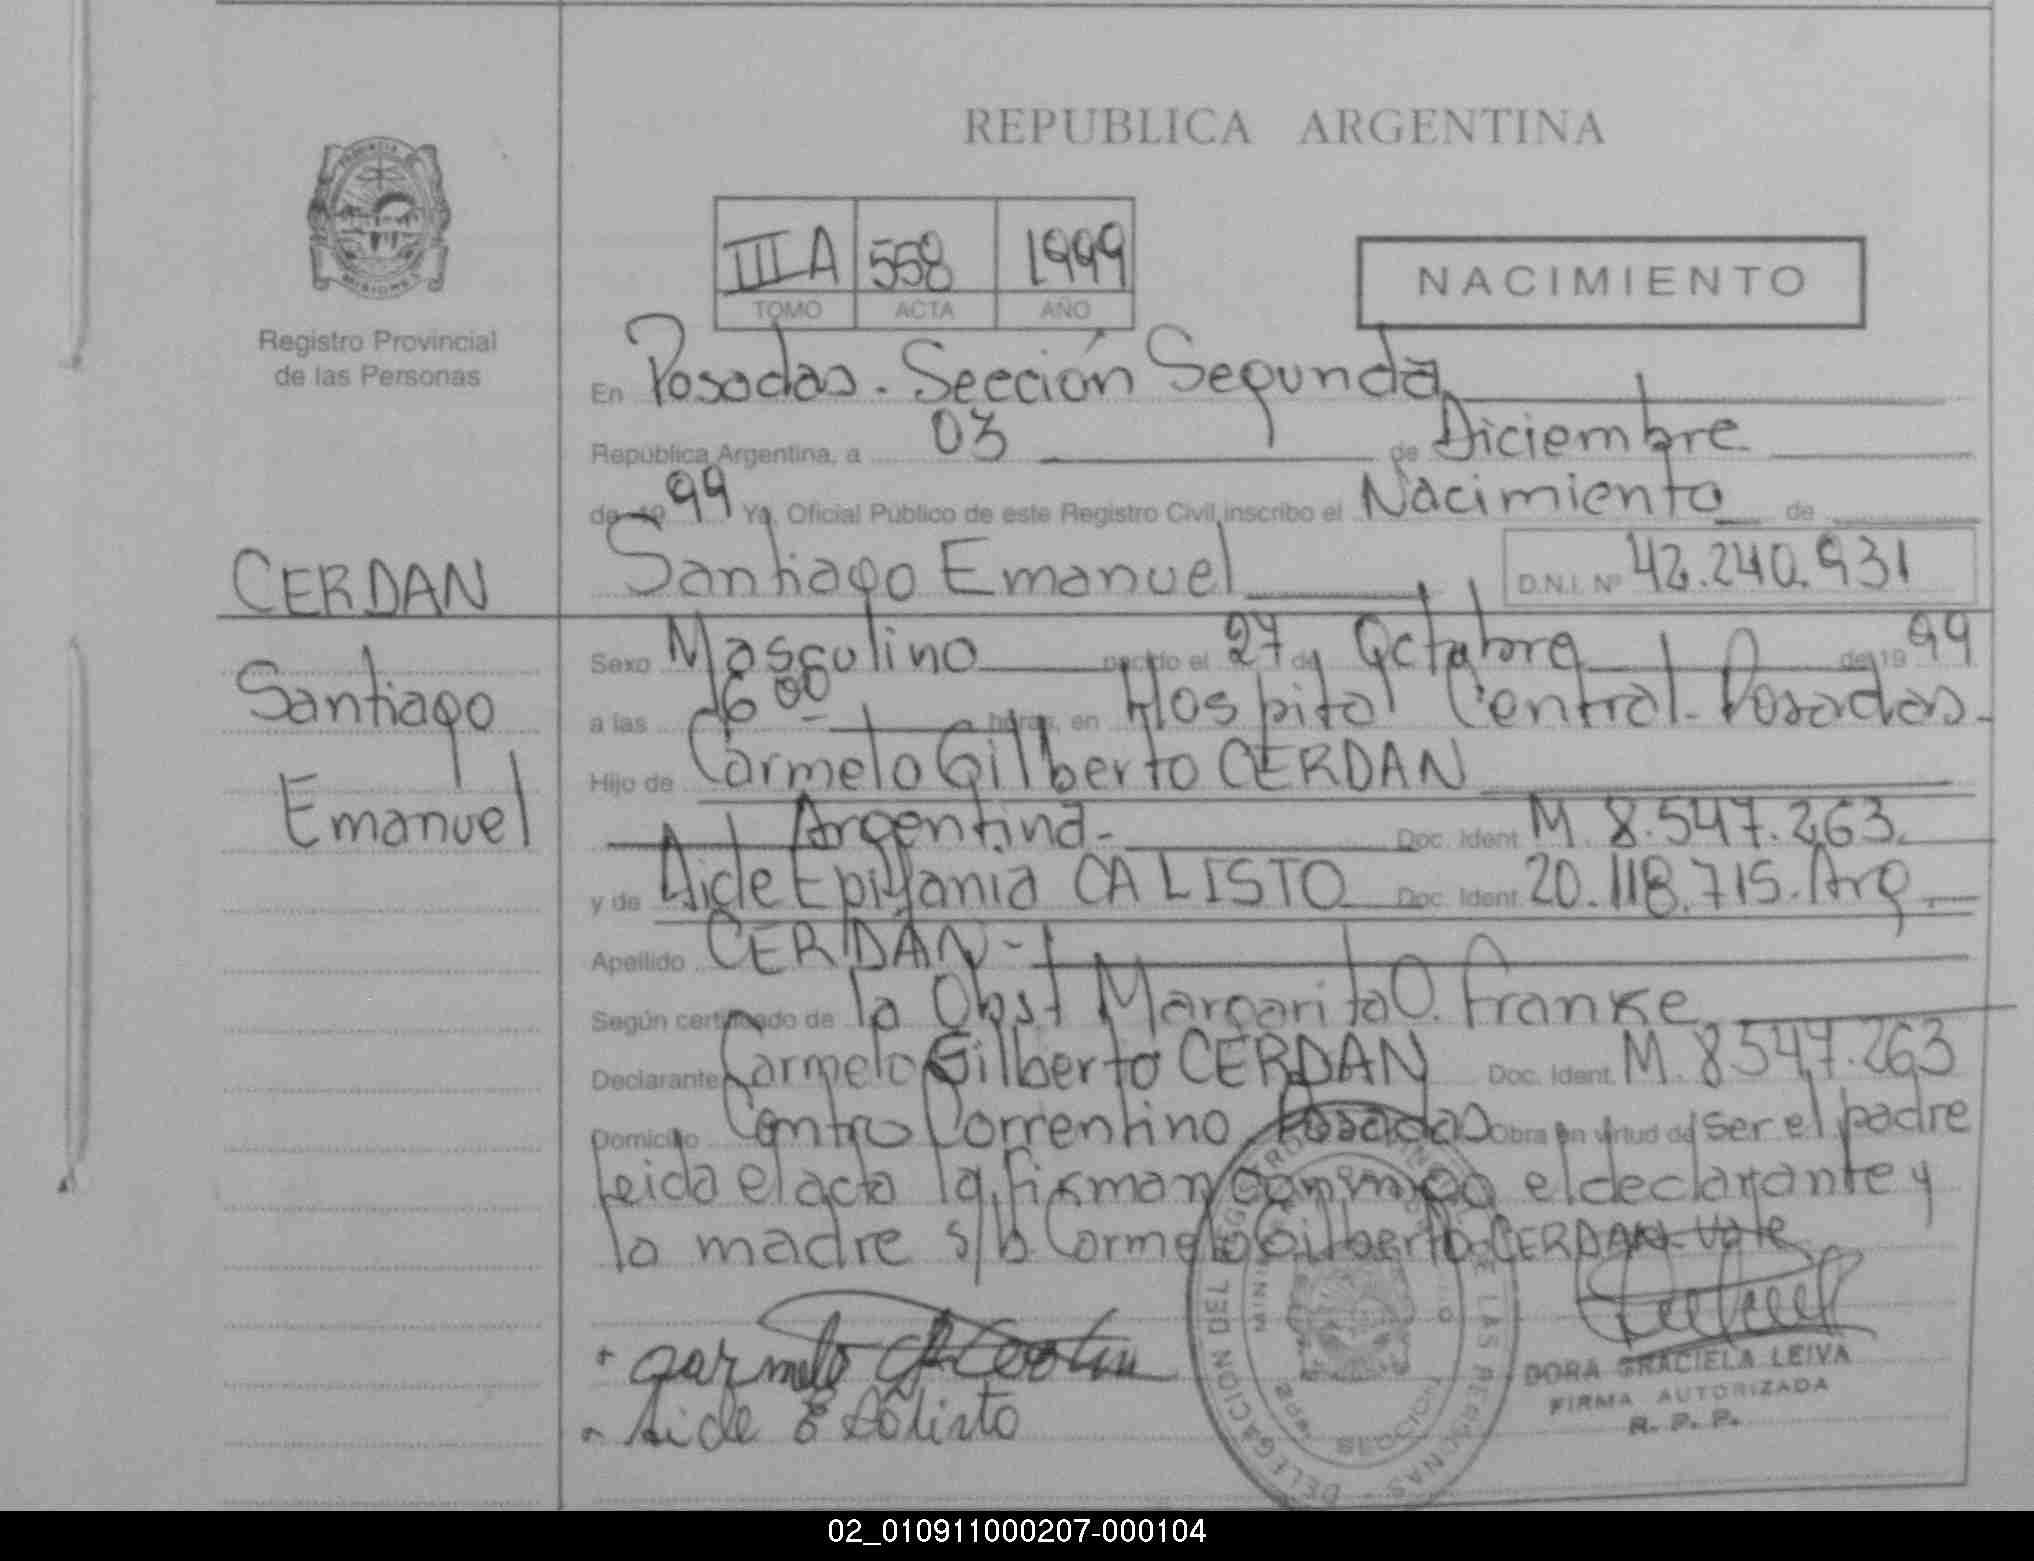 REPUBLICA ARGENTINA
PROVINCIA DE
MISIONES
Registro Provincial
de las Personas
III A 558 1999
TOMO ACTA AÑO
NACIMIENTO
En Posadas. Sección Segunda
República Argentina, a 03 de Diciembre
de 19 99 Yo, Oficial Público de este Registro Civil, inscribo el Nacimiento de
CERDAN
Santiago Emanuel D.N.I. Nº 42.240.931
Santiago
Emanuel
Sexo Masculino nacido el 27 de Octubre de 19 99
a las 16 00 horas, en Hospital Central - Posadas.-
Hijo de Carmelo Gilberto CERDAN
Argentina- Doc. Ident. M. 8.547.263.
y de Aide Epifania CALISTO Doc. Ident. 20.118.715. Arg.
Apellido CERDAN -
Según certificado de la Obst Margarita O. Franke
Declarante Carmelo Gilberto CERDAN Doc. Ident. M. 8547.263
Domicilio Centro Correntino Posadas Obra en virtud de ser el padre
leida el acta la firman conmigo el declarante y
la madre s/b Carmelo Gilberto CERDAN - Vale
Carmelo
Aide E Calisto
DELEGACION DEL REGISTRO DE LAS PERSONAS
DORA GRACIELA LEIVA
FIRMA AUTORIZADA
R. P. P.
02_010911000207-000104